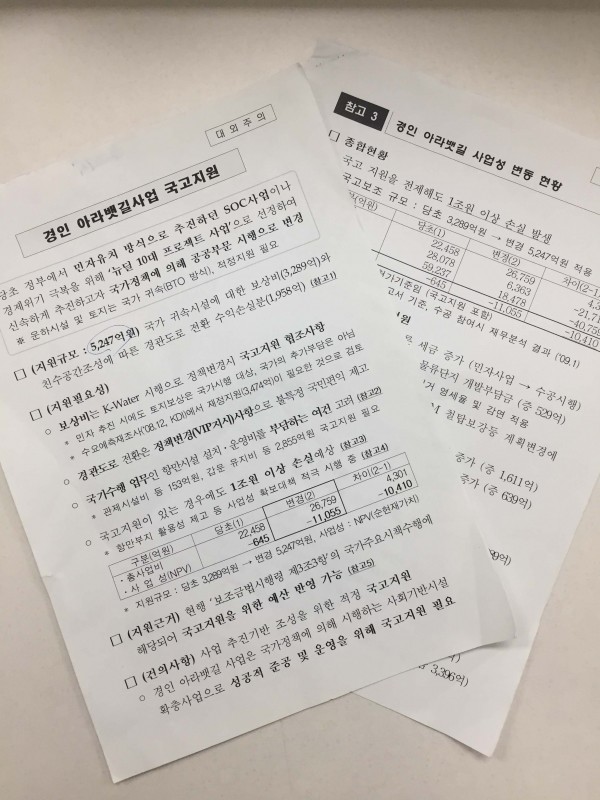 대외주의
경인 아라뱃길사업 국고지원
당초 정부에서 민자유치 방식으로 추진하던 SOC사업이나
경제위기 극복을 위해 '뉴딜 10대 프로젝트 사업'으로 선정하여
신속하게 추진하고자 국가정책에 의해 공공부문 시행으로 변경
※ 운하시설 및 토지는 국가 귀속(BTO 방식), 적정지원 필요
□ (지원규모 : 5,247억원) 국가 귀속시설에 대한 보상비(3,289억)와
친수공간조성에 따른 경관도로 전환 수익손실분(1,958억) (참고1)
□ (지원필요성)
○ 보상비는 K-Water 시행으로 정책변경시 국고지원 협조사항
* 민자 추진 시에도 토지보상은 국가시행 대상, 국가의 추가부담은 아님
* 수요예측재조사('08.12, KDI)에서 재정지원(3,474억)이 필요한 것으로 검토
○ 경관도로 전환은 정책변경(VIP지시)사항으로 불특정 국민편익 제고
○ 국가수행 업무인 항만시설 설치·운영비를 부담하는 여건 고려 (참고2)
* 관제시설비 등 153억원, 갑문 유지비 등 2,855억원 국고지원 필요
○ 국고지원이 있는 경우에도 1조원 이상 손실예상 (참고3)
* 항만부지 활용성 제고 등 사업성 확보대책 적극 시행 중 (참고4)
구분(억원) 당초(1) 변경(2) 차이(2-1)
·총사업비 22,458 26,759 4,301
·사 업 성(NPV) -645 -11,055 -10,410
* 지원규모 : 당초 3,289억원 → 변경 5,247억원, 사업성 : NPV(순현재가치)
□ (지원근거) 현행 '보조금법시행령 제3조3항'의 국가주요시책수행에
해당되어 국고지원을 위한 예산 반영 가능 (참고5)
□ (건의사항) 사업 추진기반 조성을 위한 적정 국고지원
○ 경인 아라뱃길 사업은 국가정책에 의해 시행하는 사회기반시설
확충사업으로 성공적 준공 및 운영을 위해 국고지원 필요
참고 3
경인 아라뱃길 사업성 변동 현황
□ 종합현황
국고 지원을 전제해도 1조원 이상 손실 발생
국고보조 규모 : 당초 3,289억원 → 변경 5,247억원 적용
(억원) 당초(1) 변경(2) 차이(2-1)
22,458 26,759
28,078 6,363 -21,7
59,237 18,478 -40,75
-645 -11,055 -10,410
가기준임 (국고지원 포함)
고서 기준, 수공 참여시 재무분석 결과 ('09.1)
세금 증가 (민자사업 → 수공시행)
물류단지 개발부담금 (증 529억)
영세율 및 감면 적용
철탑보강등 계획변경에
증가 (증 1,611억)
증가 (증 639억)
3,396억)